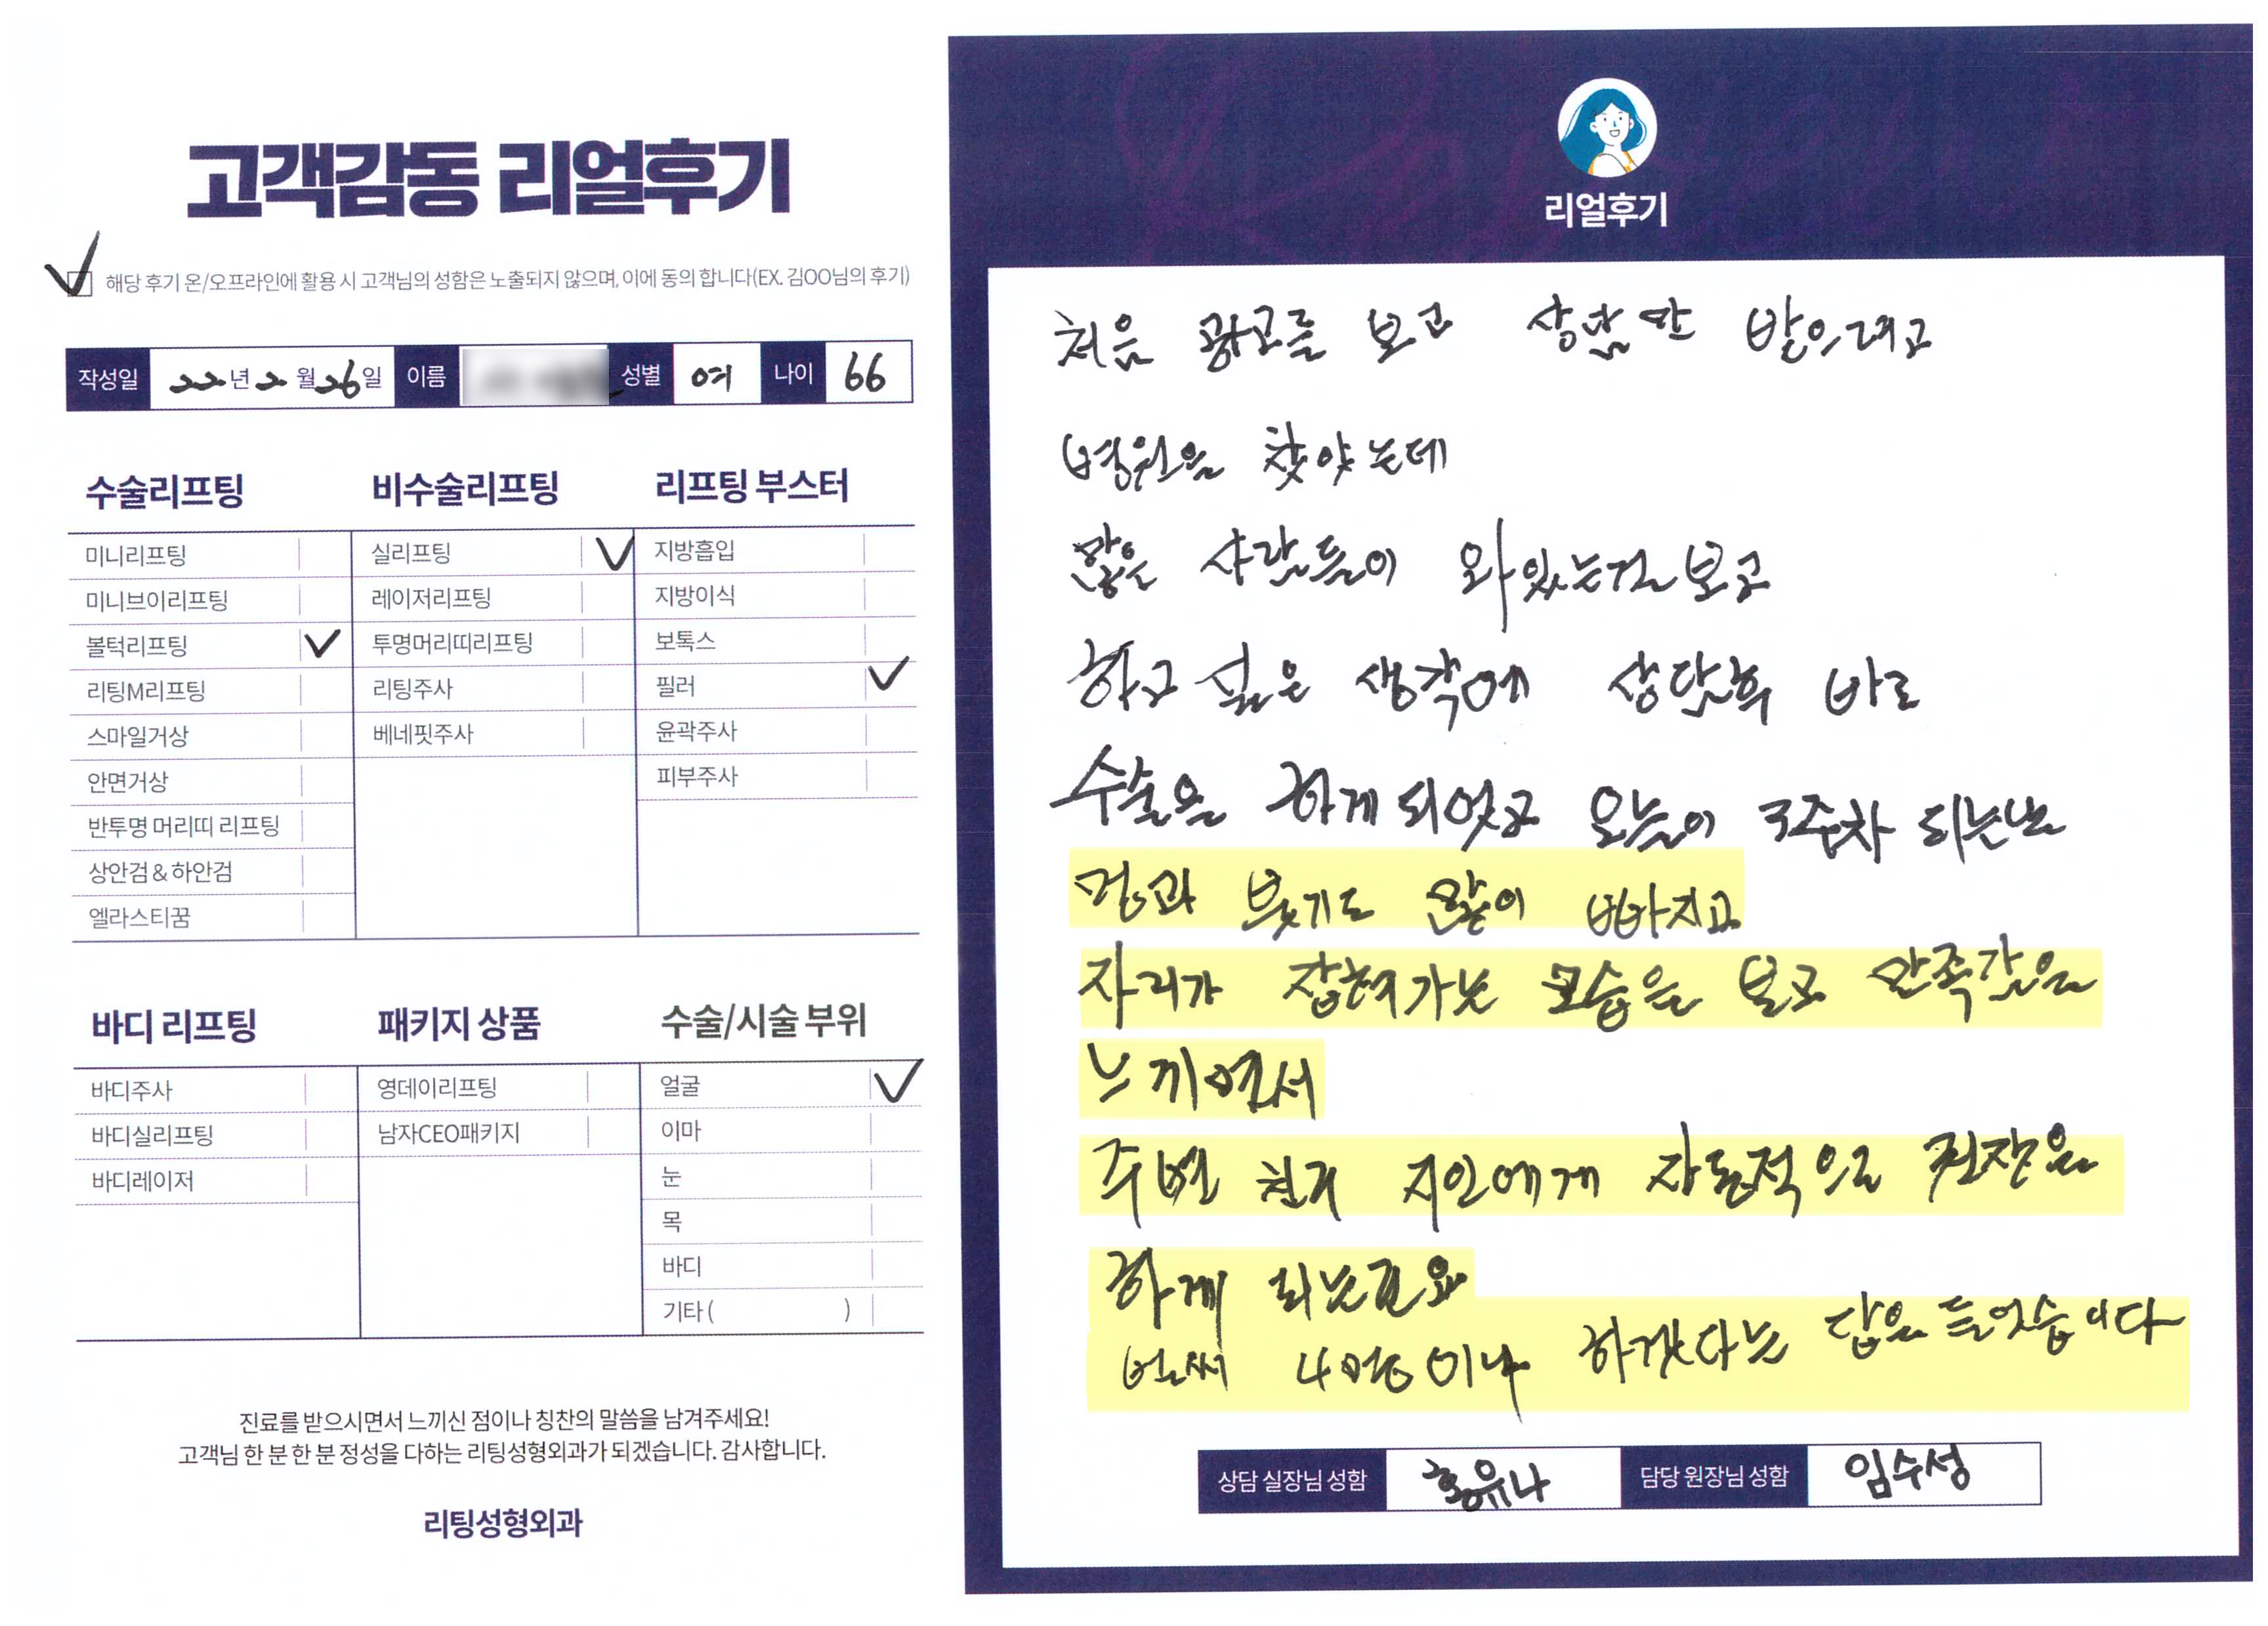 고객감동 리얼후기
해당 후기 온/오프라인에 활용 시 고객님의 성함은 노출되지 않으며, 이에 동의 합니다(EX. 김OO님의 후기)
작성일 22년 2월 26일 이름 성별 여 나이 66
수술리프팅
미니리프팅
미니브이리프팅
볼턱리프팅
리팅M리프팅
스마일거상
안면거상
반투명 머리띠 리프팅
상안검 & 하안검
엘라스티꿈
비수술리프팅
실리프팅
레이저리프팅
투명머리띠리프팅
리팅주사
베네핏주사
리프팅 부스터
지방흡입
지방이식
보톡스
필러
윤곽주사
피부주사
바디 리프팅
바디주사
바디실리프팅
바디레이저
패키지 상품
영데이리프팅
남자CEO패키지
수술/시술 부위
얼굴
이마
눈
목
바디
기타 ( )
진료를 받으시면서 느끼신 점이나 칭찬의 말씀을 남겨주세요!
고객님 한 분 한 분 정성을 다하는 리팅성형외과가 되겠습니다. 감사합니다.
리팅성형외과
리얼후기
처음 광고를 보고 상담만 받으려고
병원을 찾았는데
많은 사람들이 와있는걸 보고
하고 싶은 생각에 상담후 바로
수술을 하게 되었고 오늘이 3주차 되는날
멍과 붓기도 많이 빠지고
자리가 잡혀가는 모습을 보고 만족감을
느끼면서
주변 친구 지인에게 자동적으로 권장을
하게 되는군요
벌써 4명이나 하겠다는 답을 들었습니다
상담 실장님 성함 홍유나 담당 원장님 성함 임수성